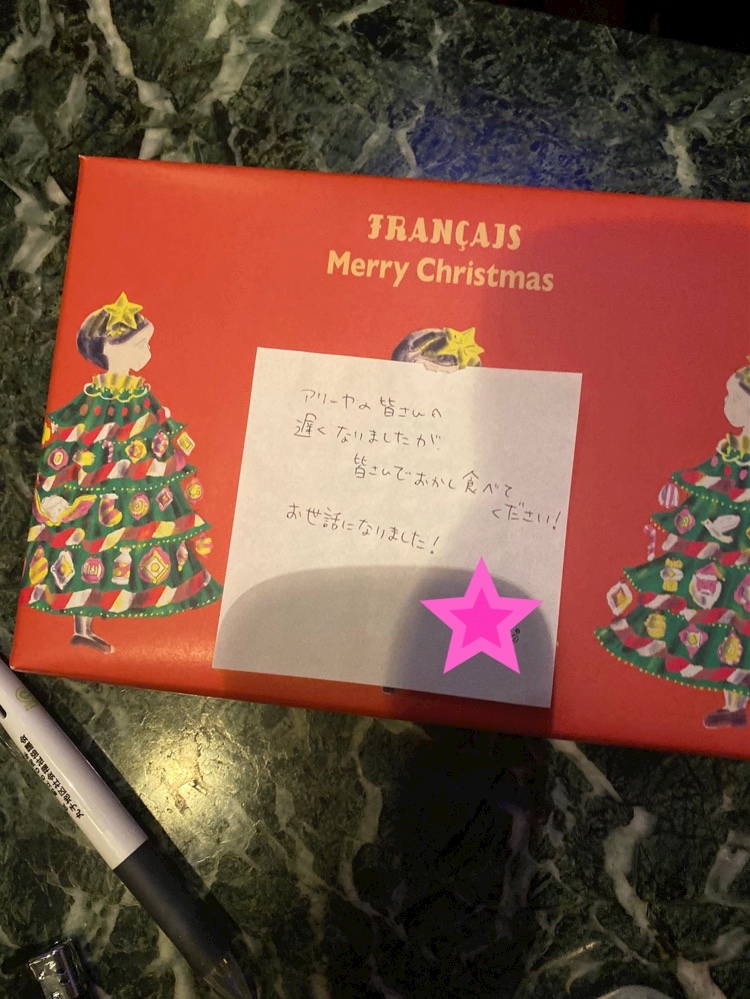 FRANÇAIS
Merry Christmas
アリーヤの皆さんへ
遅くなりましたが
皆さんでおかし食べて
ください!
お世話になりました!
丸子地区社会福祉協議会